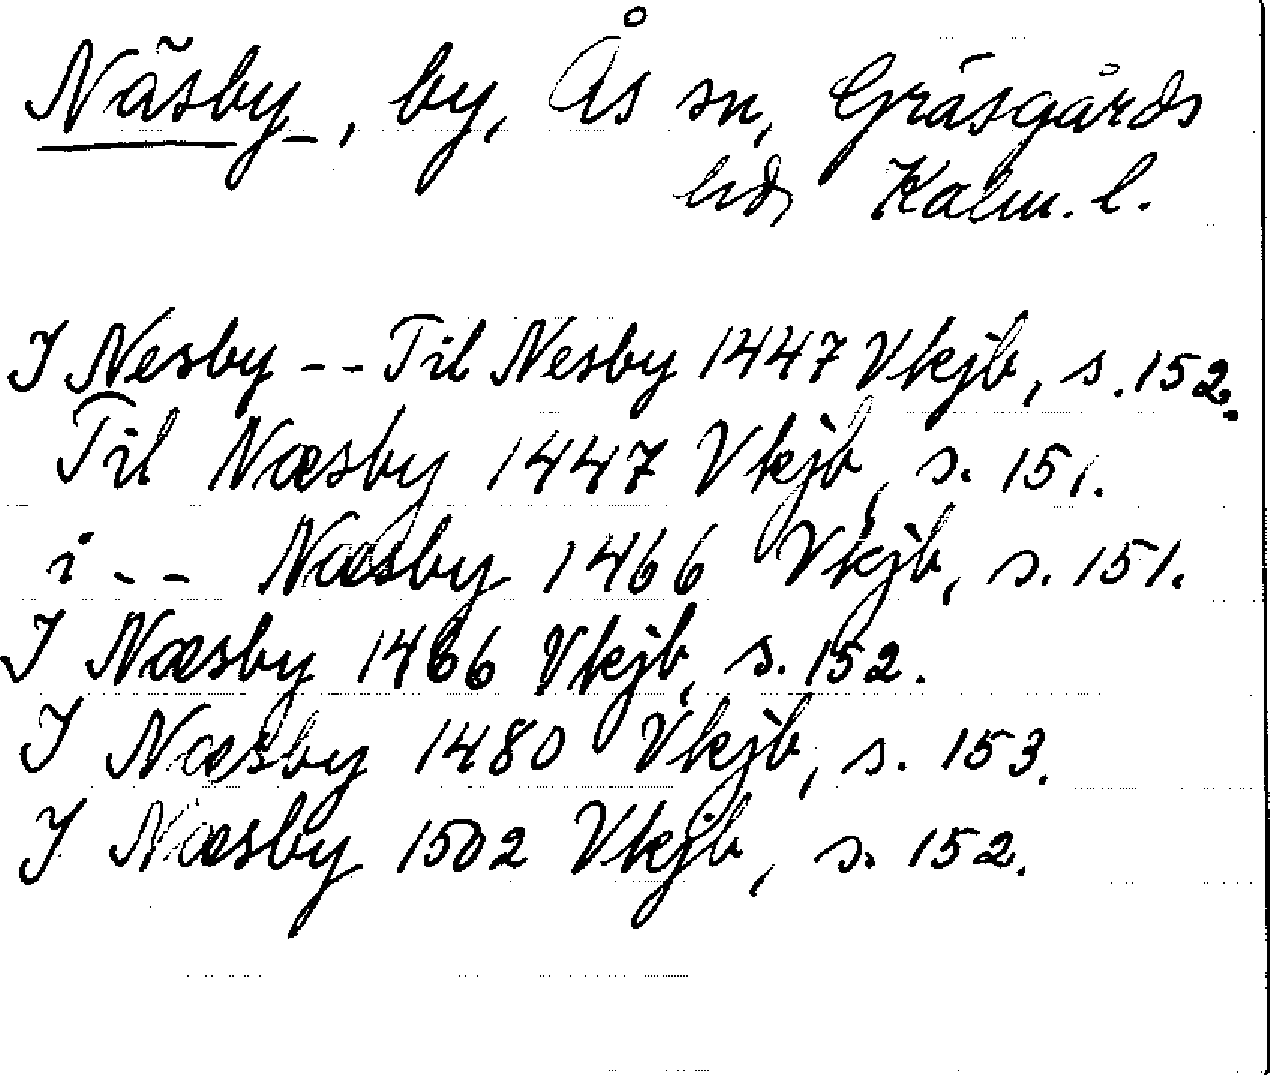 Näsby, by, Ås sn, Gräsgårds
hd, Kalm. l.
I Nesby -- Til Nesby 1447 Vkjb, s. 152.
Til Næsby 1447 Vkjb, s. 151.
i -- Næsby 1466 Vkjb, s. 151.
I Næsby 1466 Vkjb, s. 152.
I Næsby 1480 Vkjb, s. 153.
I Næsby 1502 Vkjb, s. 152.